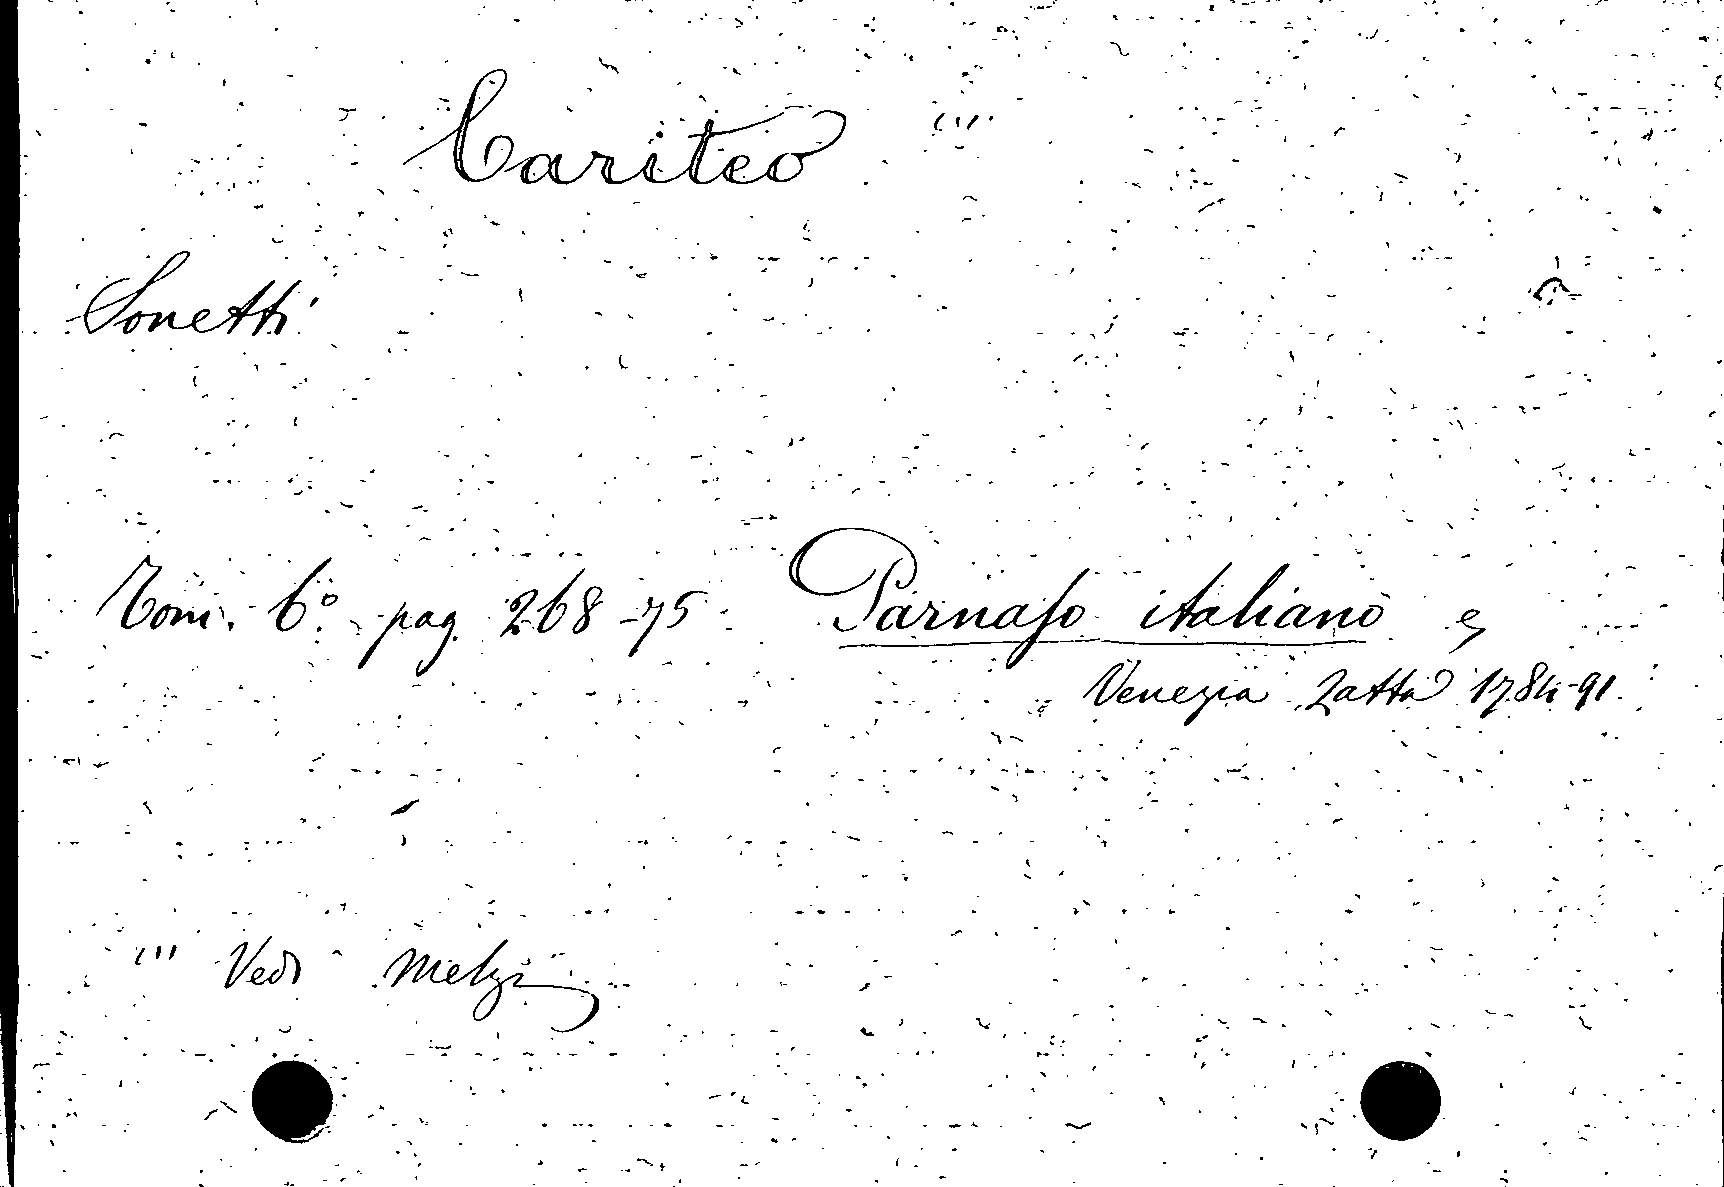 Cariteo '''
Sonetti
Tom. 6º pag. 268-75 Parnaso italiano
Venezia Zatta 1784-91.
''' Vedi Melzi